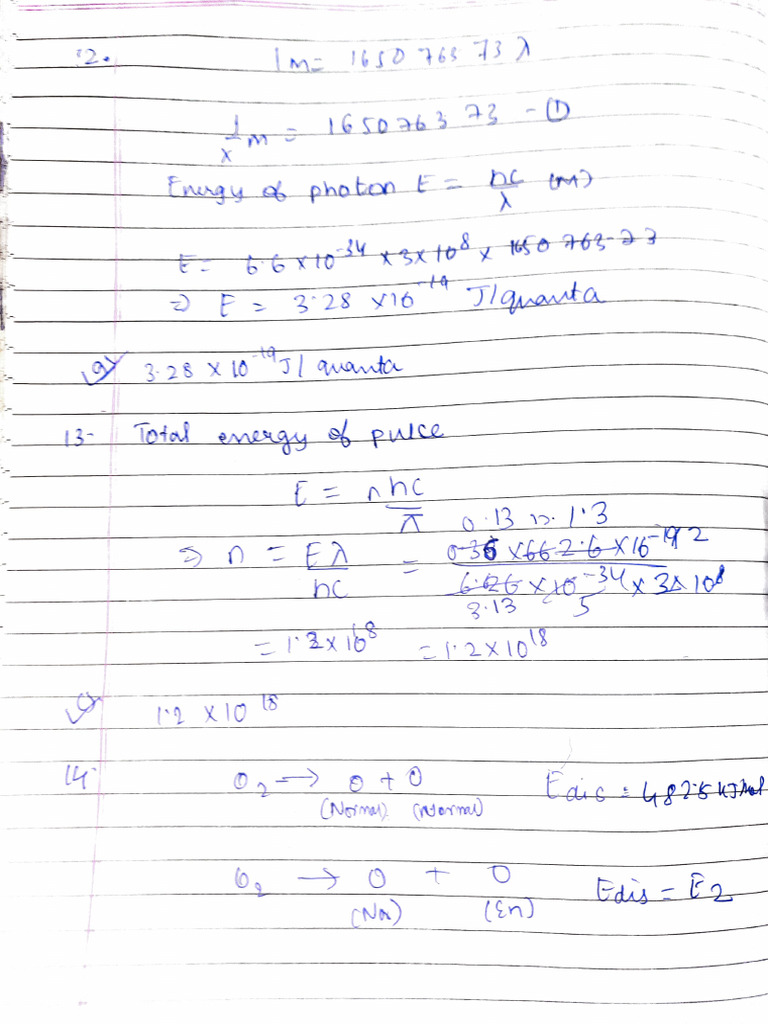 12.
1m = 1650 763 73 λ
1/x m = 1650763 73 - ①
Energy of photon E = hc/λ (m)
E = 6.6 × 10^-34 × 3 × 10^8 × 1650 763-73
⇒ E = 3.28 × 10^-19 J/quanta
a) 3.28 × 10^-19 J/ quanta
13- Total energy of pulce
E = nhc/λ
0.13 1.3
⇒ n = Eλ/hc = × 662.6 × 10^-19 / 6.626 × 10^-34 × 3 × 10^8
3.13 5
= 1.2 × 10^18 = 1.2 × 10^18
c) 1.2 × 10^18
14. O2 → O + O Edis = 482.5 kJ/mol
(Normal) (Normal)
O2 → O + O Edis = E2
(Nor) (En)